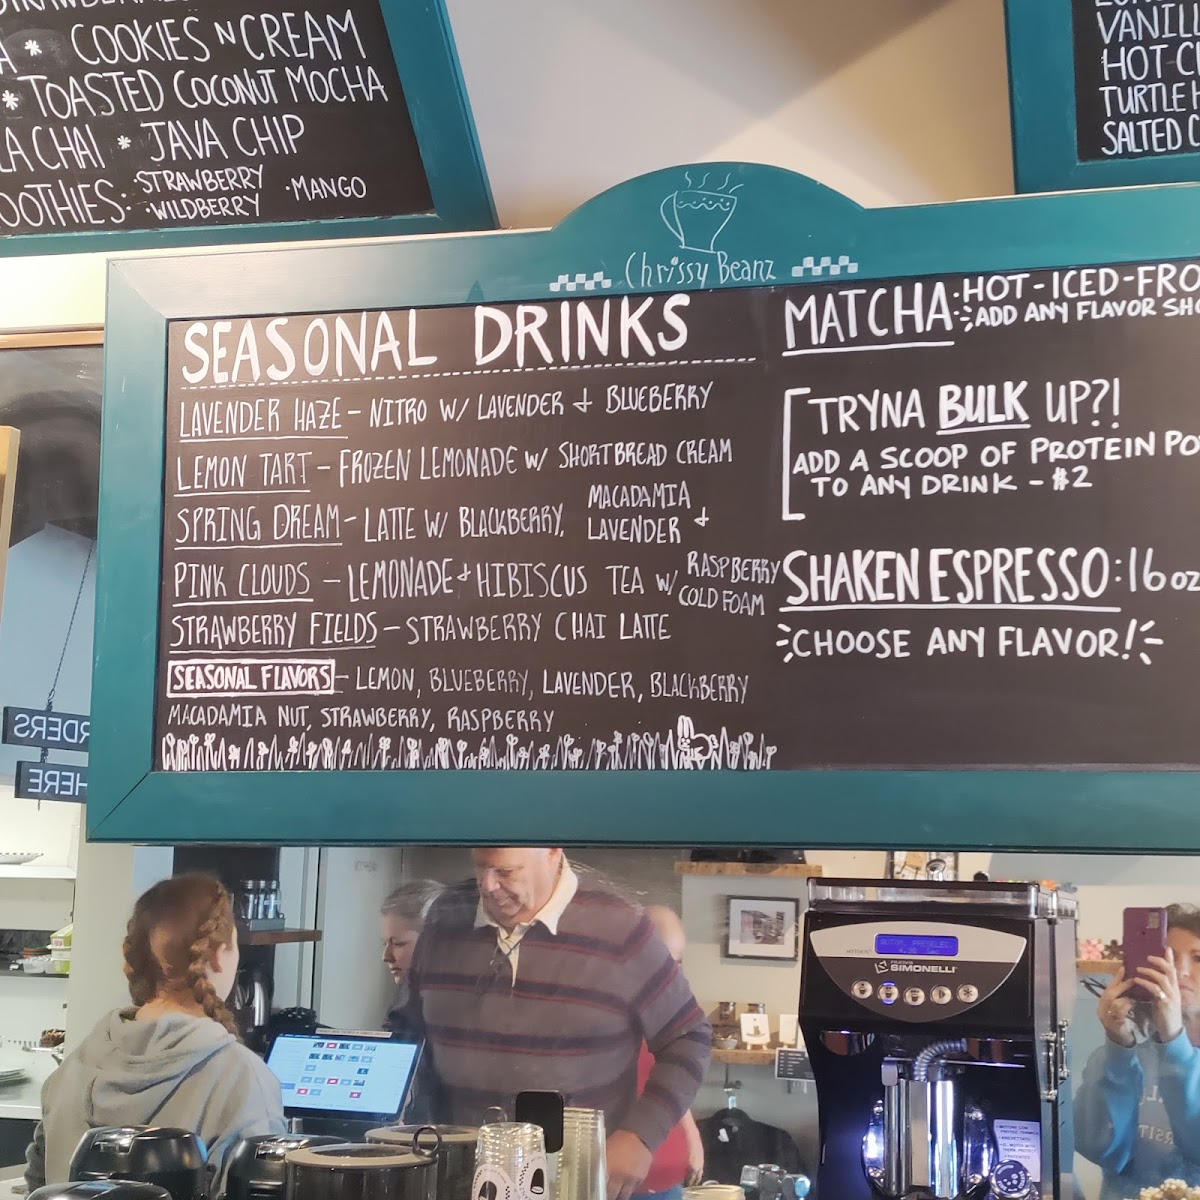 COOKIES N CREAM
* TOASTED COCONUT MOCHA
CHAI * JAVA CHIP
STRAWBERRY
• WILDBERRY
• MANGO
HOT
SALTED
Chrissy Beanz
SEASONAL DRINKS
LAVENDER HAZE - NITRO W/ LAVENDER & BLUEBERRY
LEMON TART - FROZEN LEMONADE W/ SHORTBREAD CREAM
SPRING DREAM - LATTE W/ BLACKBERRY, MACADAMIA
LAVENDER &
PINK CLOUDS - LEMONADE & HIBISCUS TEA W/ RASPBERRY
COLD FOAM
STRAWBERRY FIELDS - STRAWBERRY CHAI LATTE
SEASONAL FLAVORS - LEMON, BLUEBERRY, LAVENDER, BLACKBERRY
MACADAMIA NUT, STRAWBERRY, RASPBERRY
MATCHA: HOT-ICED-FRO
ADD ANY FLAVOR
TRYNA BULK UP?!
ADD A SCOOP OF PROTEIN
TO ANY DRINK - $2
SHAKEN ESPRESSO: 16 oz
CHOOSE ANY FLAVOR!
HERE
SIMONELLI